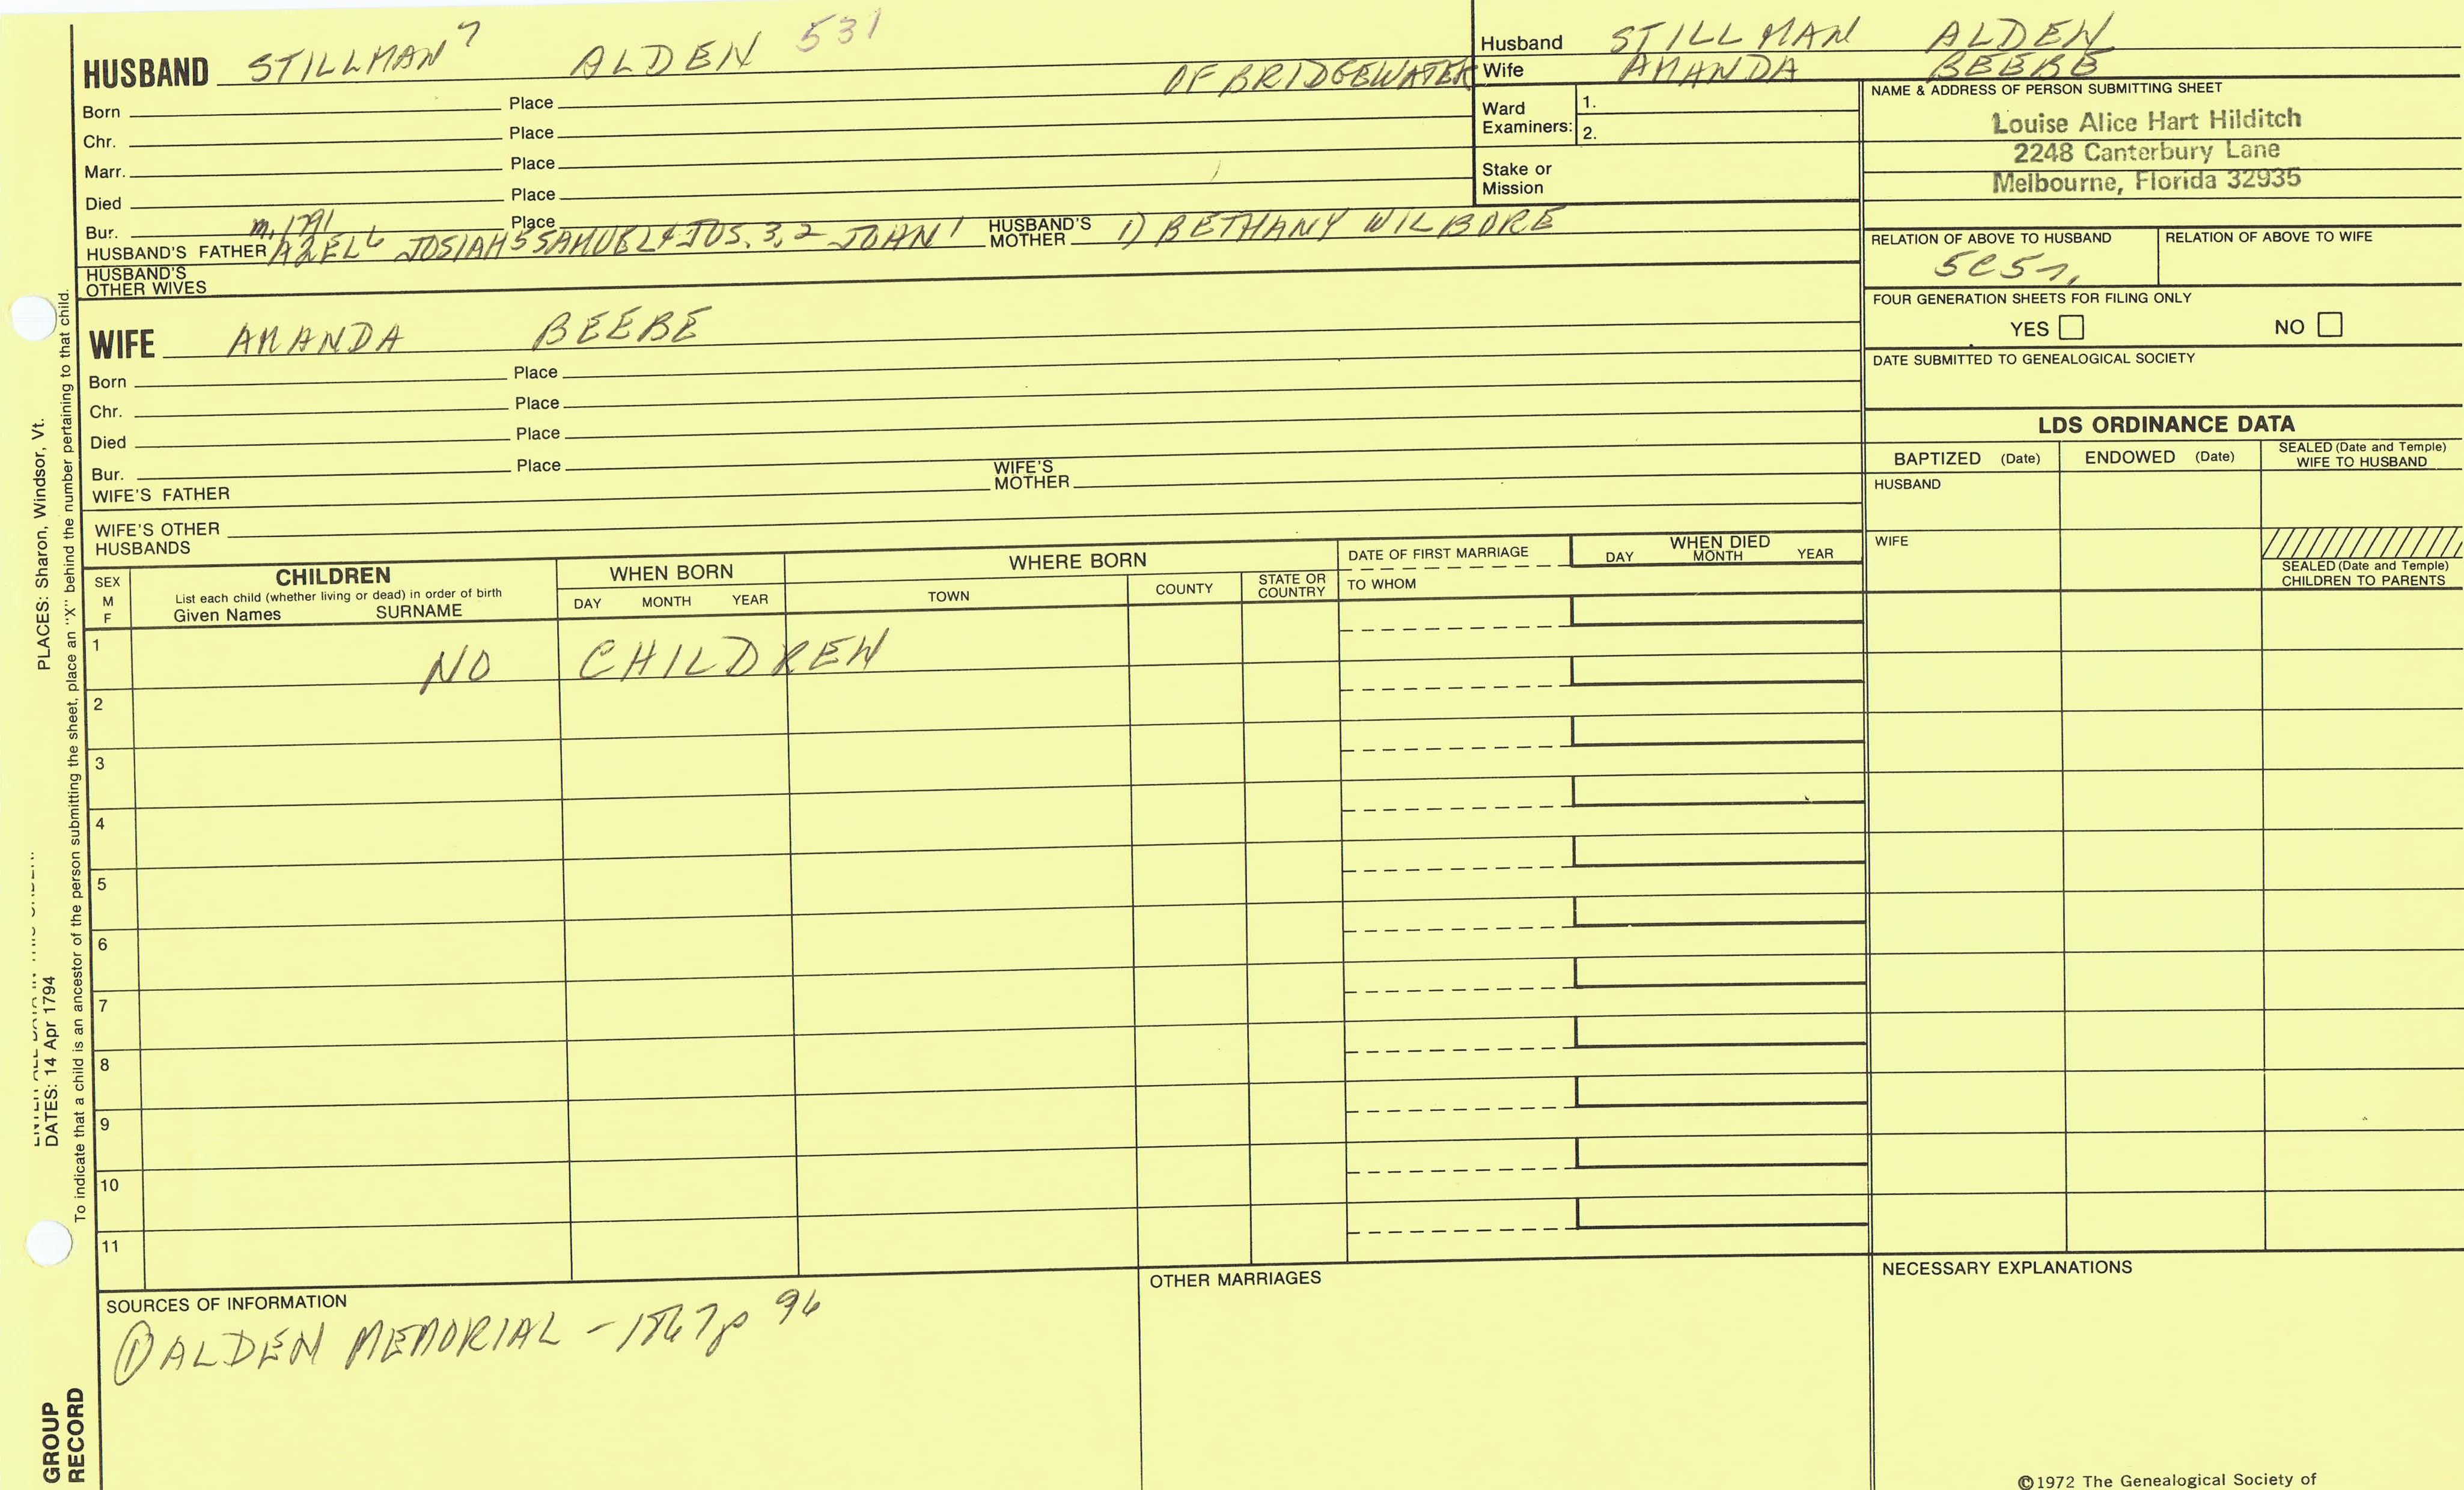 HUSBAND STILLMAN 7 ALDEN 531
OF BRIDGEWATER
Born Place
Chr. Place
Marr. Place
Died Place
Bur. Place
m. 1791
HUSBAND'S FATHER AZEL 6 JOSIAH 5 SAMUEL 4 JOS. 3, 2 JOHN 1 HUSBAND'S MOTHER 1) BETHANY WILBORE
HUSBAND'S OTHER WIVES
WIFE AMANDA BEEBE
Born Place
Chr. Place
Died Place
Bur. Place
WIFE'S FATHER WIFE'S MOTHER
WIFE'S OTHER HUSBANDS
Husband STILLMAN ALDEN
Wife AMANDA BEEBE
Ward Examiners: 1.
2.
Stake or Mission
NAME & ADDRESS OF PERSON SUBMITTING SHEET
Louise Alice Hart Hilditch
2248 Canterbury Lane
Melbourne, Florida 32935
RELATION OF ABOVE TO HUSBAND RELATION OF ABOVE TO WIFE
5C5r.
FOUR GENERATION SHEETS FOR FILING ONLY
YES NO
DATE SUBMITTED TO GENEALOGICAL SOCIETY
LDS ORDINANCE DATA
BAPTIZED (Date) ENDOWED (Date) SEALED (Date and Temple) WIFE TO HUSBAND
HUSBAND
WIFE
SEALED (Date and Temple) CHILDREN TO PARENTS
SEX M F
CHILDREN
List each child (whether living or dead) in order of birth
Given Names SURNAME
WHEN BORN
DAY MONTH YEAR
WHERE BORN
TOWN COUNTY STATE OR COUNTRY
DATE OF FIRST MARRIAGE
TO WHOM
WHEN DIED
DAY MONTH YEAR
1 NO CHILDREN
2
3
4
5
6
7
8
9
10
11
SOURCES OF INFORMATION
① ALDEN MEMORIAL - 1867 p 96
OTHER MARRIAGES
NECESSARY EXPLANATIONS
©1972 The Genealogical Society of
PLACES: Sharon, Windsor, Vt.
DATES: 14 Apr 1794
To indicate that a child is an ancestor of the person submitting the sheet, place an "X" behind the number pertaining to that child.
GROUP
RECORD